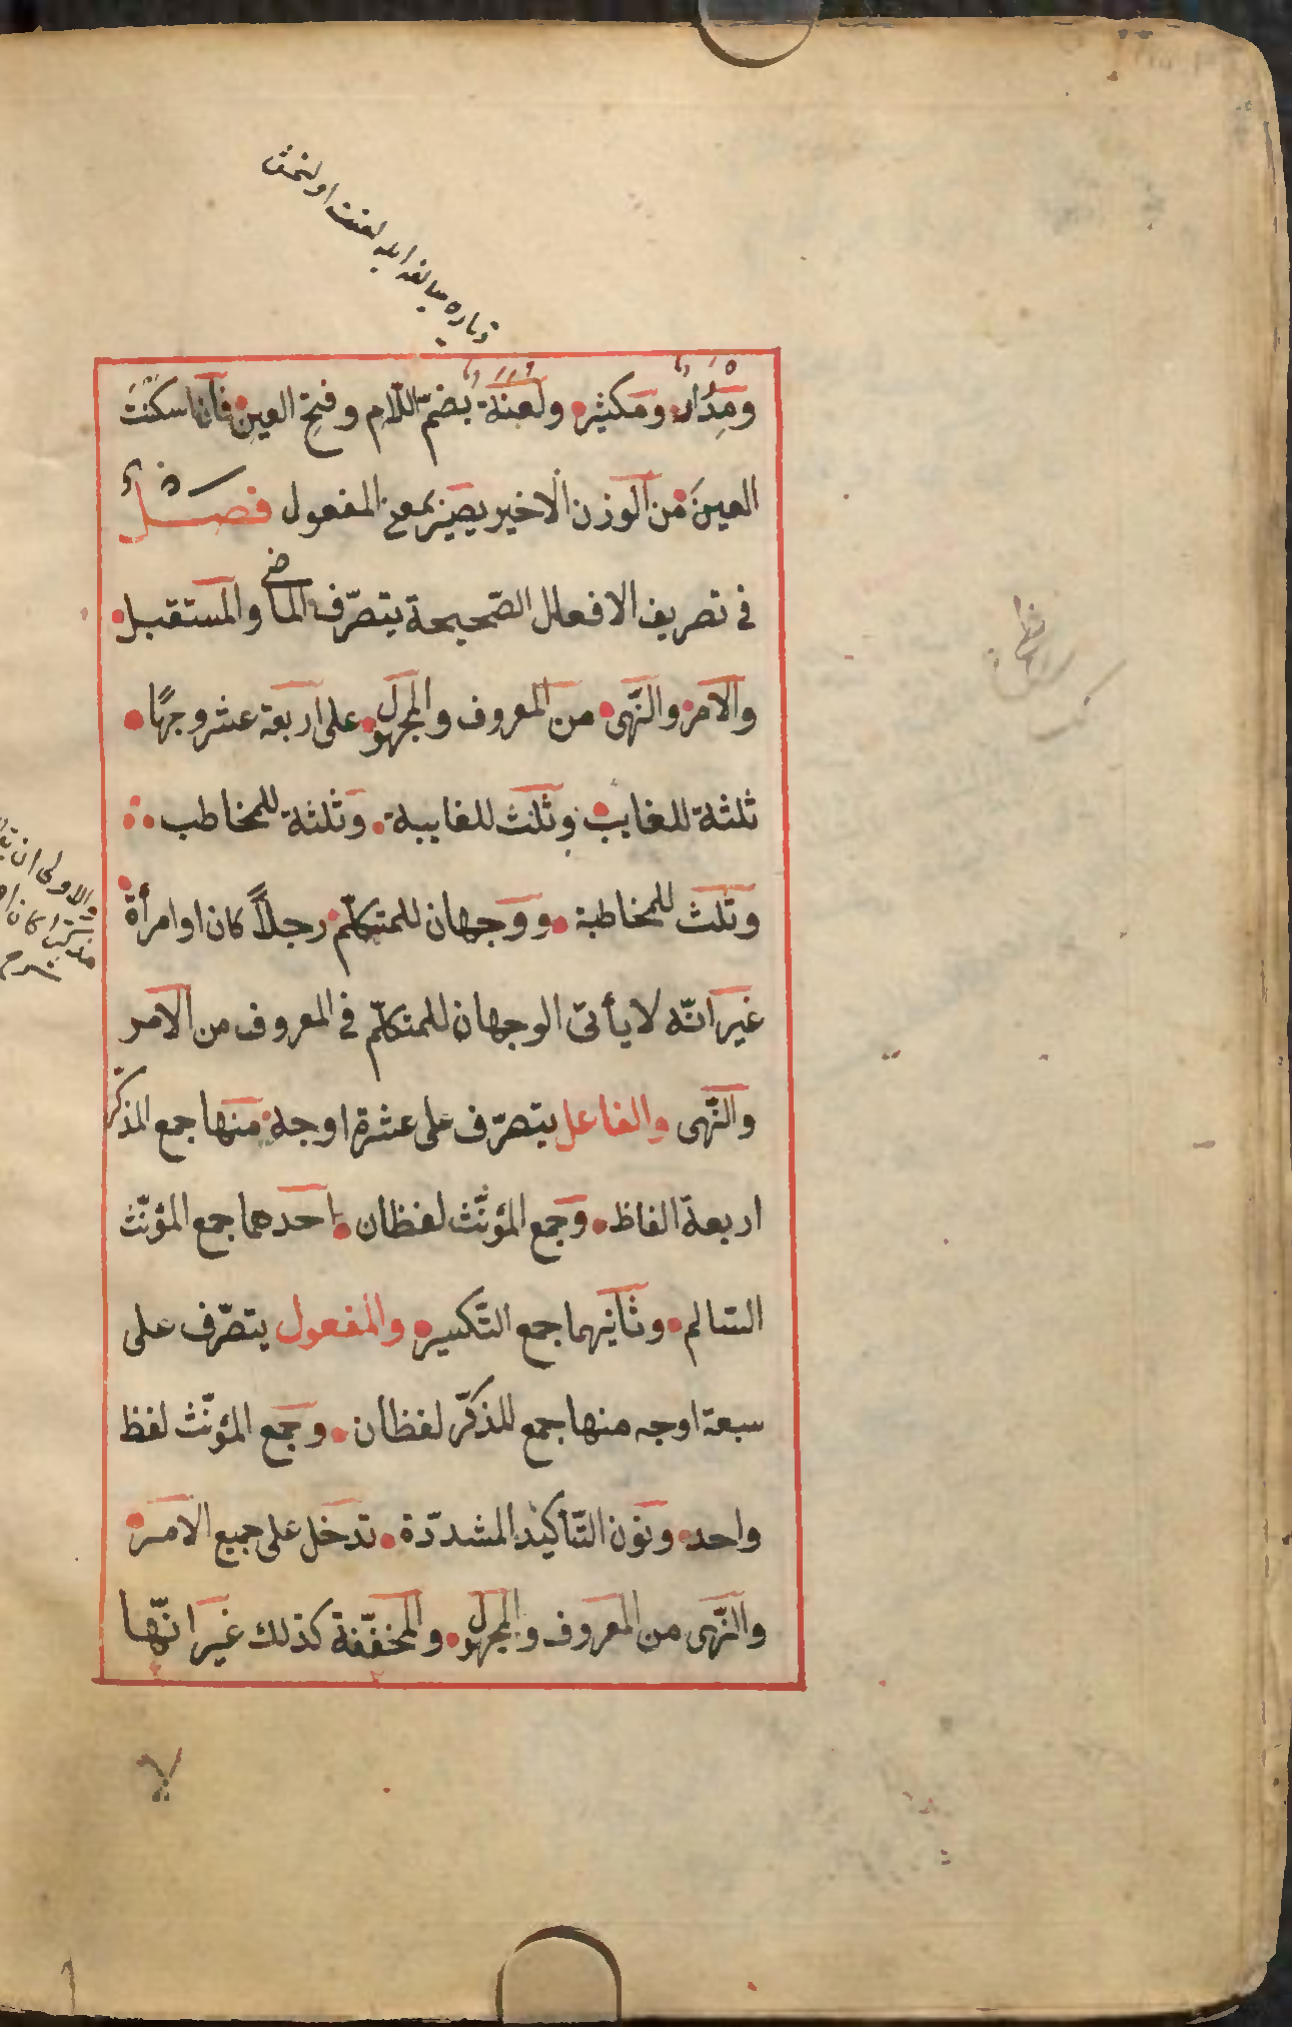 زياده مبالغه ايله لعنت اولنمق
ومدرار ومكثير ولعنة بضم اللّام وفتح العين فان اسكنت
العين من الوزن الاخير يصير بمعنى المفعول فصل
فى تصريف الافعال الصّحيحة يتصرّف الماضى والمستقبل
والامر والنّهى من المعروف والمجهول على اربعة عشر وجهًا
ثلثة للغايب وثلث للغايبة وثلثة للمخاطب
وثلث للمخاطبة ووجهان للمتكلّم رجلاً كان او امرأة
غير انّه لا يأتى الوجهان للمتكلّم فى المعروف من الامر
والنّهى والفاعل يتصرّف على عشرة اوجه منها جمع المذكّر
اربعة الفاظ وجمع المؤنّث لفظان احدهما جمع المؤنّث
السّالم وثانيهما جمع التّكسير والمفعول يتصرّف على
سبعة اوجه منها جمع للمذكّر لفظان وجمع المؤنّث لفظ
واحد ونون التّأكيد المشدّدة تدخل على جميع الامر
والنّهى من المعروف والمجهول والمخفّفة كذلك غير انّها
لا